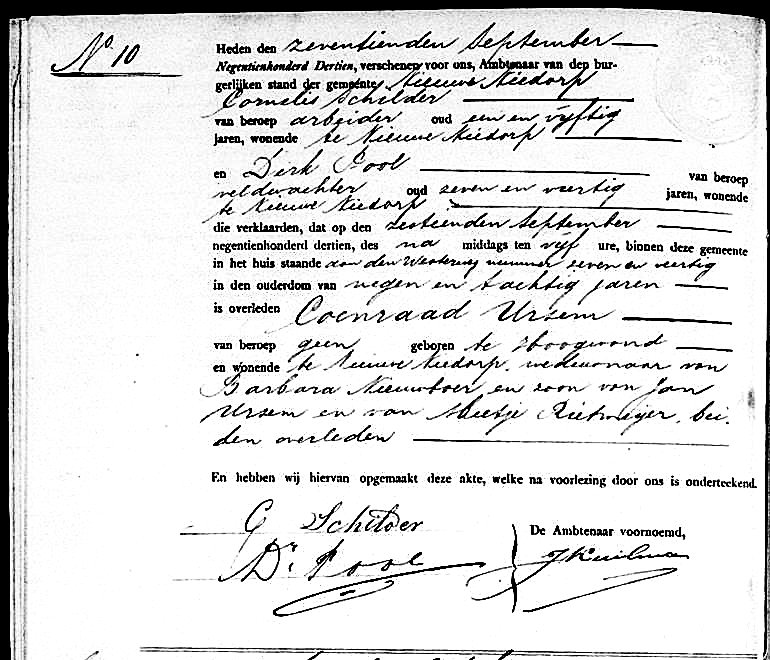 No 10
Heden den zeventienden September
Negentienhonderd Dertien, verschenen voor ons, Ambtenaar van den bur-
gerlijken stand der gemeente Nieuwe Niedorp
Cornelis Schilder
van beroep arbeider oud een en vijftig
jaren, wonende te Nieuwe Niedorp
en Dirk Pool van beroep
veldwachter oud zeven en veertig jaren, wonende
te Nieuwe Niedorp
die verklaarden, dat op den zestienden September
negentienhonderd dertien, des na middags ten vijf ure, binnen deze gemeente
in het huis staande aan den Westerweg nummer zeven en veertig
in den ouderdom van negen en tachtig jaren
is overleden Coenraad Ursem
van beroep geen geboren te Hoogwoud
en wonende te Nieuwe Niedorp, weduwnaar van
Barbara Nieuwboer en zoon van Jan
Ursem en van Rietmeijer, bei-
den overleden
En hebben wij hiervan opgemaakt deze akte, welke na voorlezing door ons is onderteekend.
C Schilder
De Ambtenaar voornoemd,
Dk. Pool